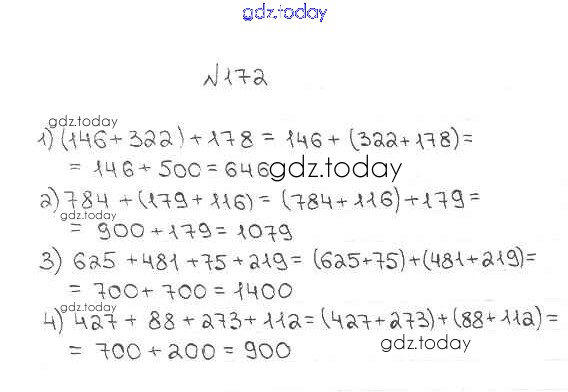 gdz.today
№172
gdz.today
1) (146+322)+178 = 146+(322+178)=
= 146+500=646
gdz.today
2) 784+(179+116)=(784+116)+179=
gdz.today
= 900+179=1079
3) 625+481+75+219=(625+75)+(481+219)=
= 700+700=1400
gdz.today
4) 427+88+273+112=(427+273)+(88+112)=
= 700+200=900
gdz.today